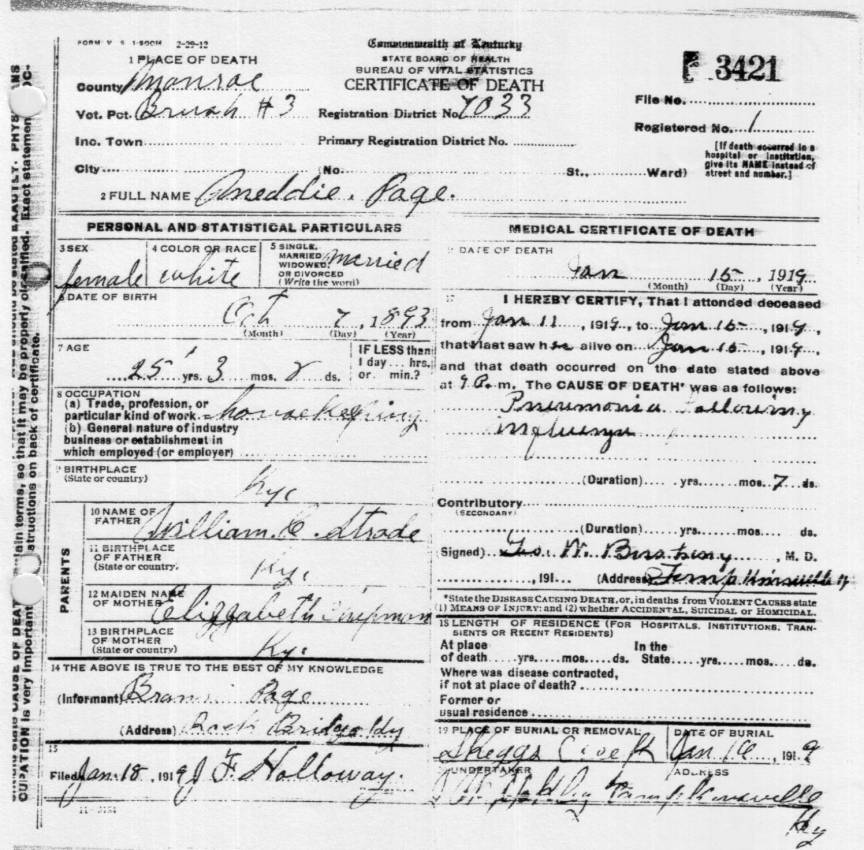 FORM V. S. 1-50CM 2-29-12
Commonwealth of Kentucky
STATE BOARD OF HEALTH
BUREAU OF VITAL STATISTICS
CERTIFICATE OF DEATH
3421
1 PLACE OF DEATH
County Monroe
Vot. Pct. Brush #3 Registration District No. 7033
File No.
Registered No. 1
Inc. Town Primary Registration District No.
City (No. St., Ward)
[If death occurred in a hospital or institution, give its NAME instead of street and number.]
2 FULL NAME Oneddie. Page.
PERSONAL AND STATISTICAL PARTICULARS
3 SEX
female
4 COLOR OR RACE
white
5 SINGLE, MARRIED, WIDOWED, OR DIVORCED
(Write the word)
married
6 DATE OF BIRTH
Oct 7, 1893
(Month) (Day) (Year)
7 AGE
25 yrs. 3 mos. 2 ds.
IF LESS than
1 day hrs.
or min.?
8 OCCUPATION
(a) Trade, profession, or
particular kind of work housekeeping
(b) General nature of industry
business or establishment in
which employed (or employer)
9 BIRTHPLACE
(State or country)
Ky.
PARENTS
10 NAME OF FATHER
William C. Strode
11 BIRTHPLACE OF FATHER
(State or country)
Ky.
12 MAIDEN NAME OF MOTHER
Elizzabeth Chipman
13 BIRTHPLACE OF MOTHER
(State or country)
Ky.
14 THE ABOVE IS TRUE TO THE BEST OF MY KNOWLEDGE
(Informant) Page
(Address) Rock Bridge Ky
15
Filed Jan 18, 1919 J F. Holloway.
11-3184
MEDICAL CERTIFICATE OF DEATH
DATE OF DEATH
Jan 15, 1919
(Month) (Day) (Year)
17 I HEREBY CERTIFY, That I attended deceased
from Jan 11, 1919, to Jan 15, 1919,
that I last saw her alive on Jan 15, 1919,
and that death occurred on the date stated above
at 9 P. m. The CAUSE OF DEATH* was as follows:
Pneumonia Following
influenza
(Duration) yrs. mos. 7 ds.
Contributory
(SECONDARY)
(Duration) yrs. mos. ds.
(Signed) Geo. W. M. D.
, 191 (Address)
*State the DISEASE CAUSING DEATH, or, in deaths from VIOLENT CAUSES state
(1) MEANS OF INJURY; and (2) whether ACCIDENTAL, SUICIDAL or HOMICIDAL.
18 LENGTH OF RESIDENCE (FOR HOSPITALS, INSTITUTIONS, TRANSIENTS OR RECENT RESIDENTS)
At place In the
of death yrs. mos. ds. State yrs. mos. ds.
Where was disease contracted,
if not at place of death?
Former or
usual residence
19 PLACE OF BURIAL OR REMOVAL
Skeggs Creek
DATE OF BURIAL
Jan 16, 1919
UNDERTAKER
ADDRESS
Tompkinsville
Ky